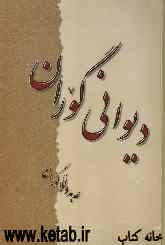 دیوانی گۆران
www.ketab.ir
خانه کتاب